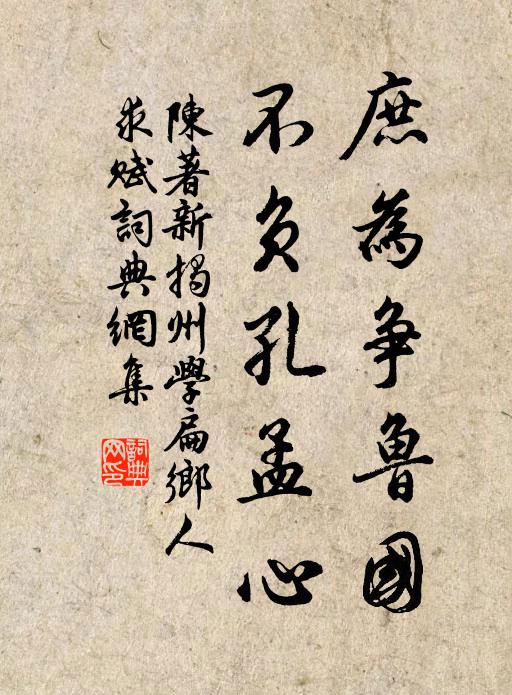 庶為争魯國
不負孔孟心
陳著新揭州學扁鄉人
求賦詞典網集
詞典
网印